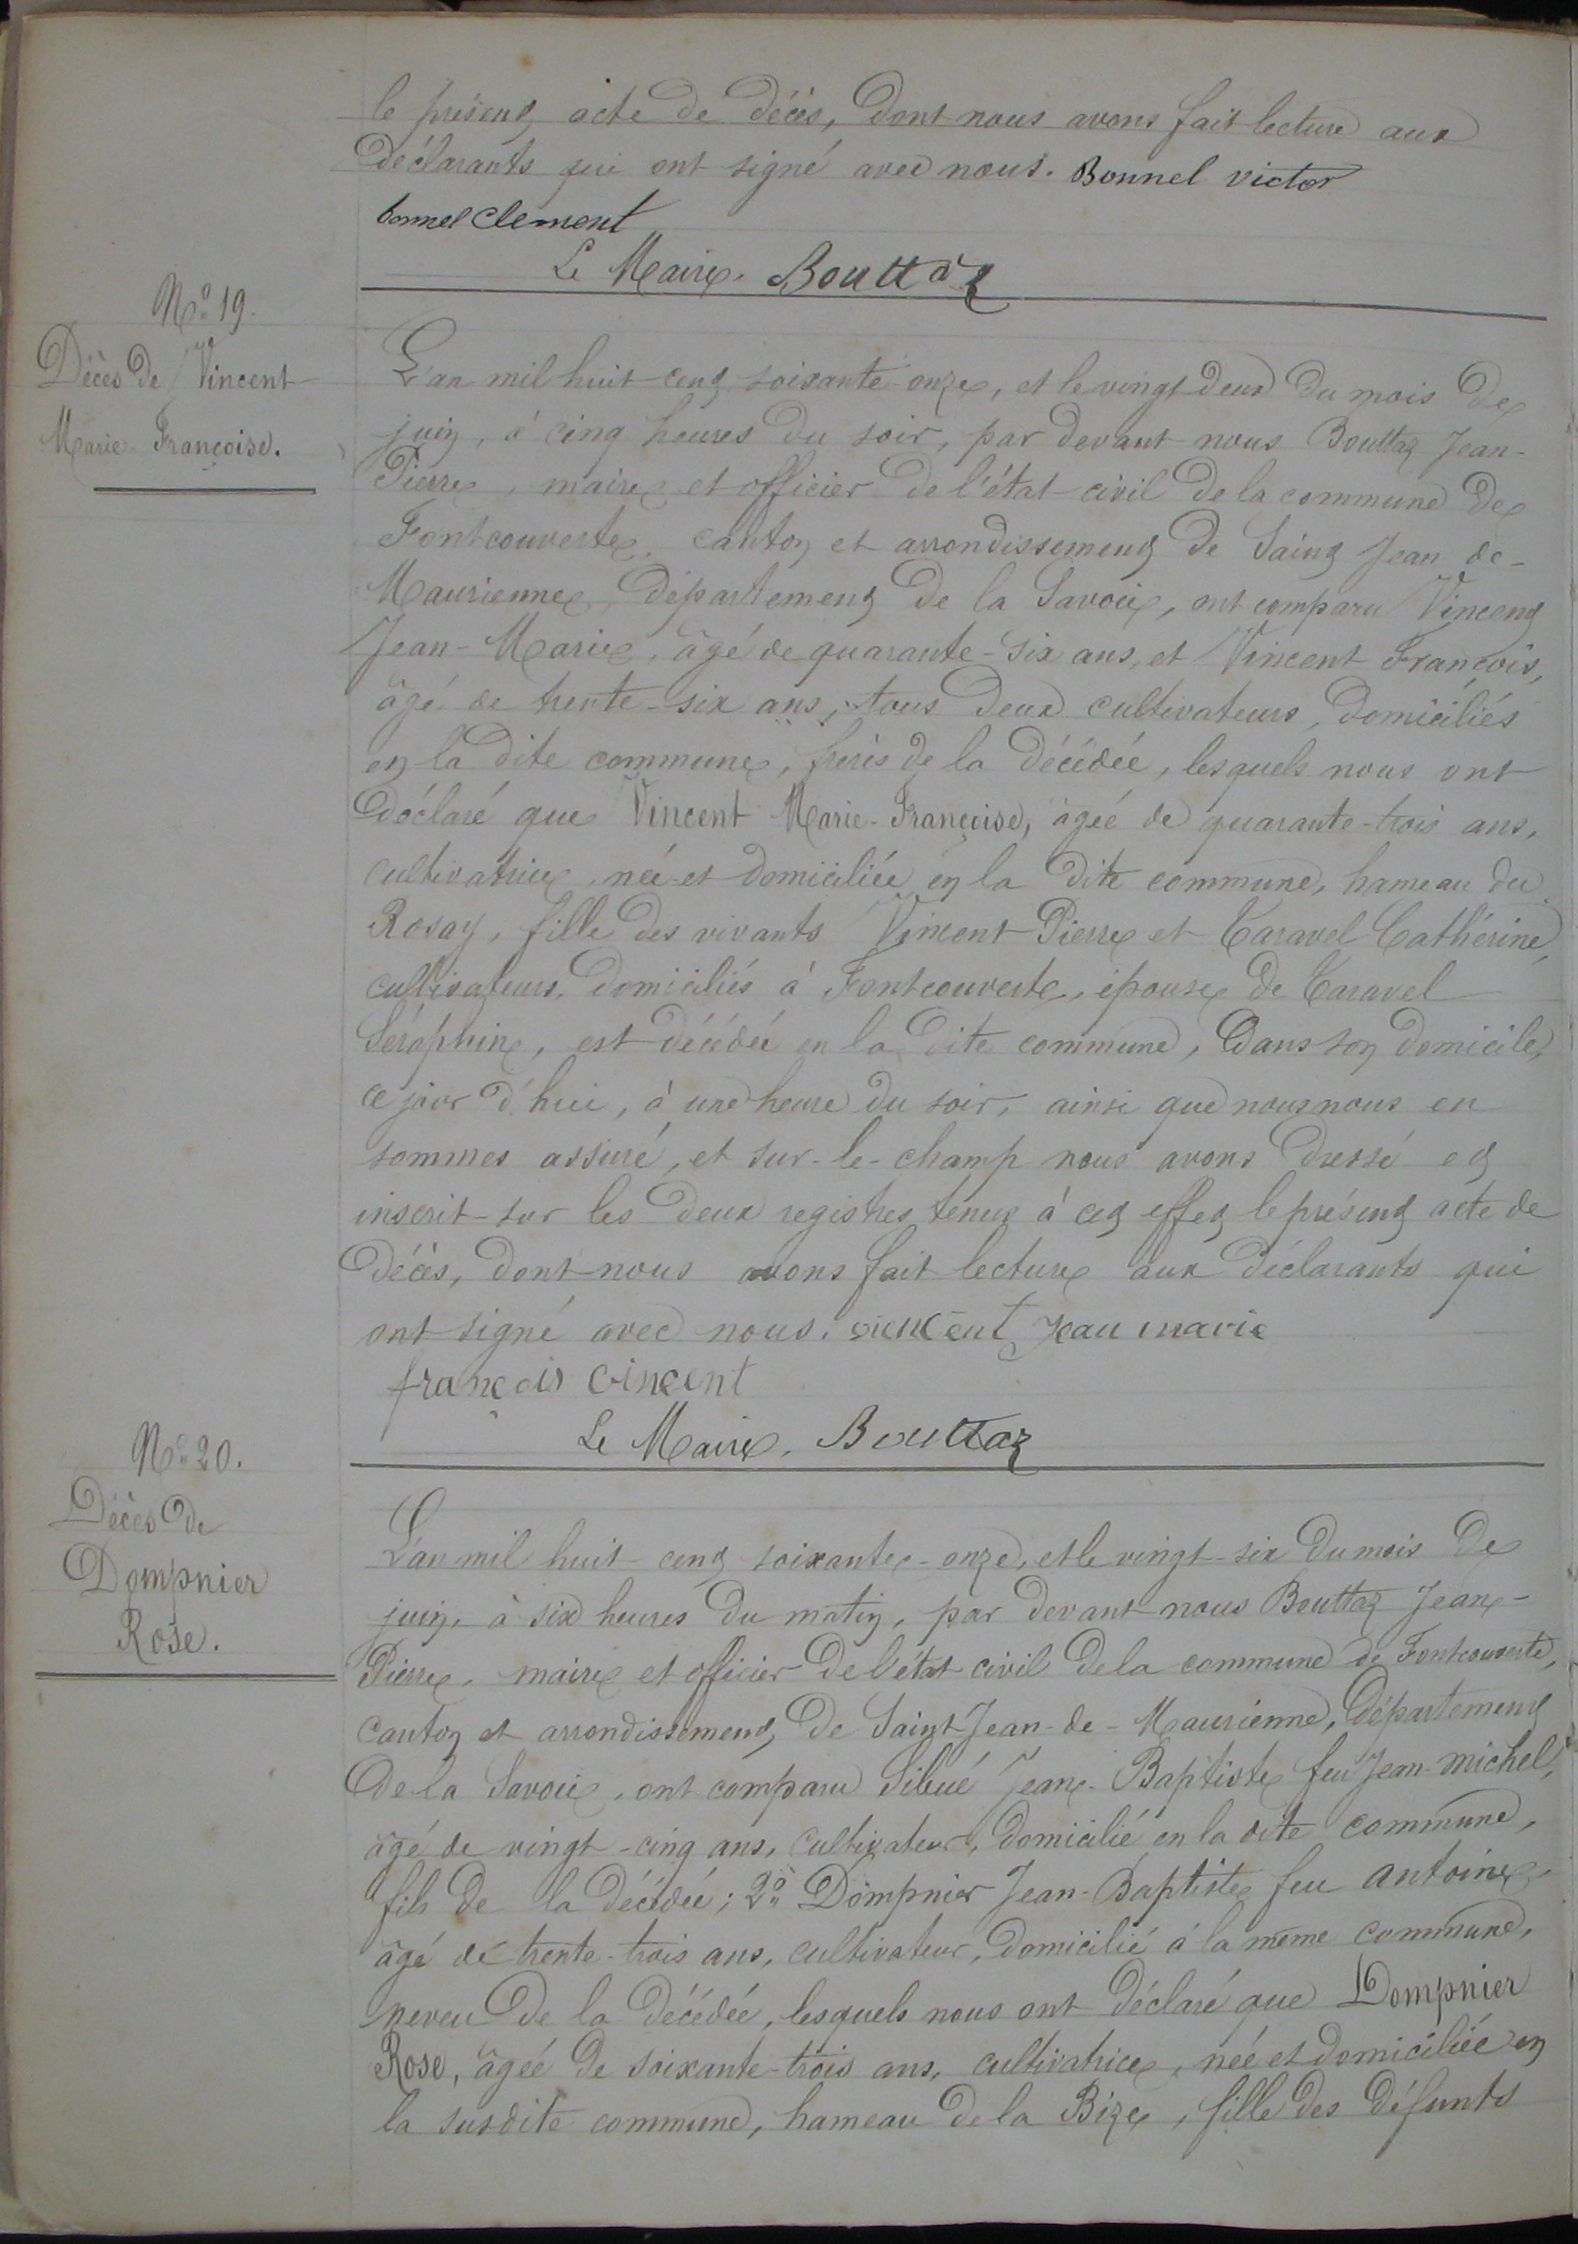 le présent acte de décès, dont nous avons fait lecture aux
déclarants qui ont signé avec nous. Bonnel victor
bonnel clement
Le Maire, Bouttaz
N° 19.
Décès de Vincent
Marie-Françoise.
L'an mil huit-cent soixante-onze, et le vingt-deux du mois de
juin, à cinq heures du soir, par devant nous Bouttaz Jean-
Pierre, maire et officier de l'état-civil de la commune de
Fontcouverte, canton et arrondissement de Saint Jean de-
Maurienne, département de la Savoie, ont comparu Vincent
Jean-Marie, âgé de quarante-six ans, et Vincent François,
âgé de trente-six ans, tous deux cultivateurs, domiciliés
en la dite commune, frères de la décédée, lesquels nous ont
déclaré que Vincent Marie-Françoise, âgée de quarante-trois ans,
cultivatrice, née et domiciliée en la dite commune, hameau du
Rosay, fille des vivants Vincent Pierre et Caravel Cathérine,
cultivateurs, domiciliés à Fontcouverte, épouse de Caravel
Séraphin, est décédée en la dite commune, dans son domicile,
ce jour d'hui, à une heure du soir, ainsi que nous nous en
sommes assuré, et sur-le-champ nous avons dressé et
inscrit sur les deux registres tenus à cet effet le présent acte de
décès, dont nous avons fait lecture aux déclarants qui
ont signé avec nous. vincent Jean marie
françois vincent
Le Maire, Bouttaz
N° 20.
Décès de
Dompnier
Rose.
L'an mil huit-cent soixante-onze, et le vingt-six du mois de
juin, à six heures du matin, par devant nous Bouttaz Jean-
Pierre, maire et officier de l'état civil de la commune de Fontcouverte,
canton et arrondissement de Saint Jean-de-Maurienne, département
de la Savoie, ont comparu Sibué Jean-Baptiste feu Jean-michel,
âgé de vingt-cinq ans, cultivateur, domicilié en la dite commune,
fils de la décédée; 2° Dompnier Jean-Baptiste feu antoine,
âgé de trente-trois ans, cultivateur, domicilié à la même commune,
neveu de la décédée, lesquels nous ont déclaré que Dompnier
Rose, âgée de soixante-trois ans, cultivatrice, née et domiciliée en
la susdite commune, hameau de la Bize, fille des défunts